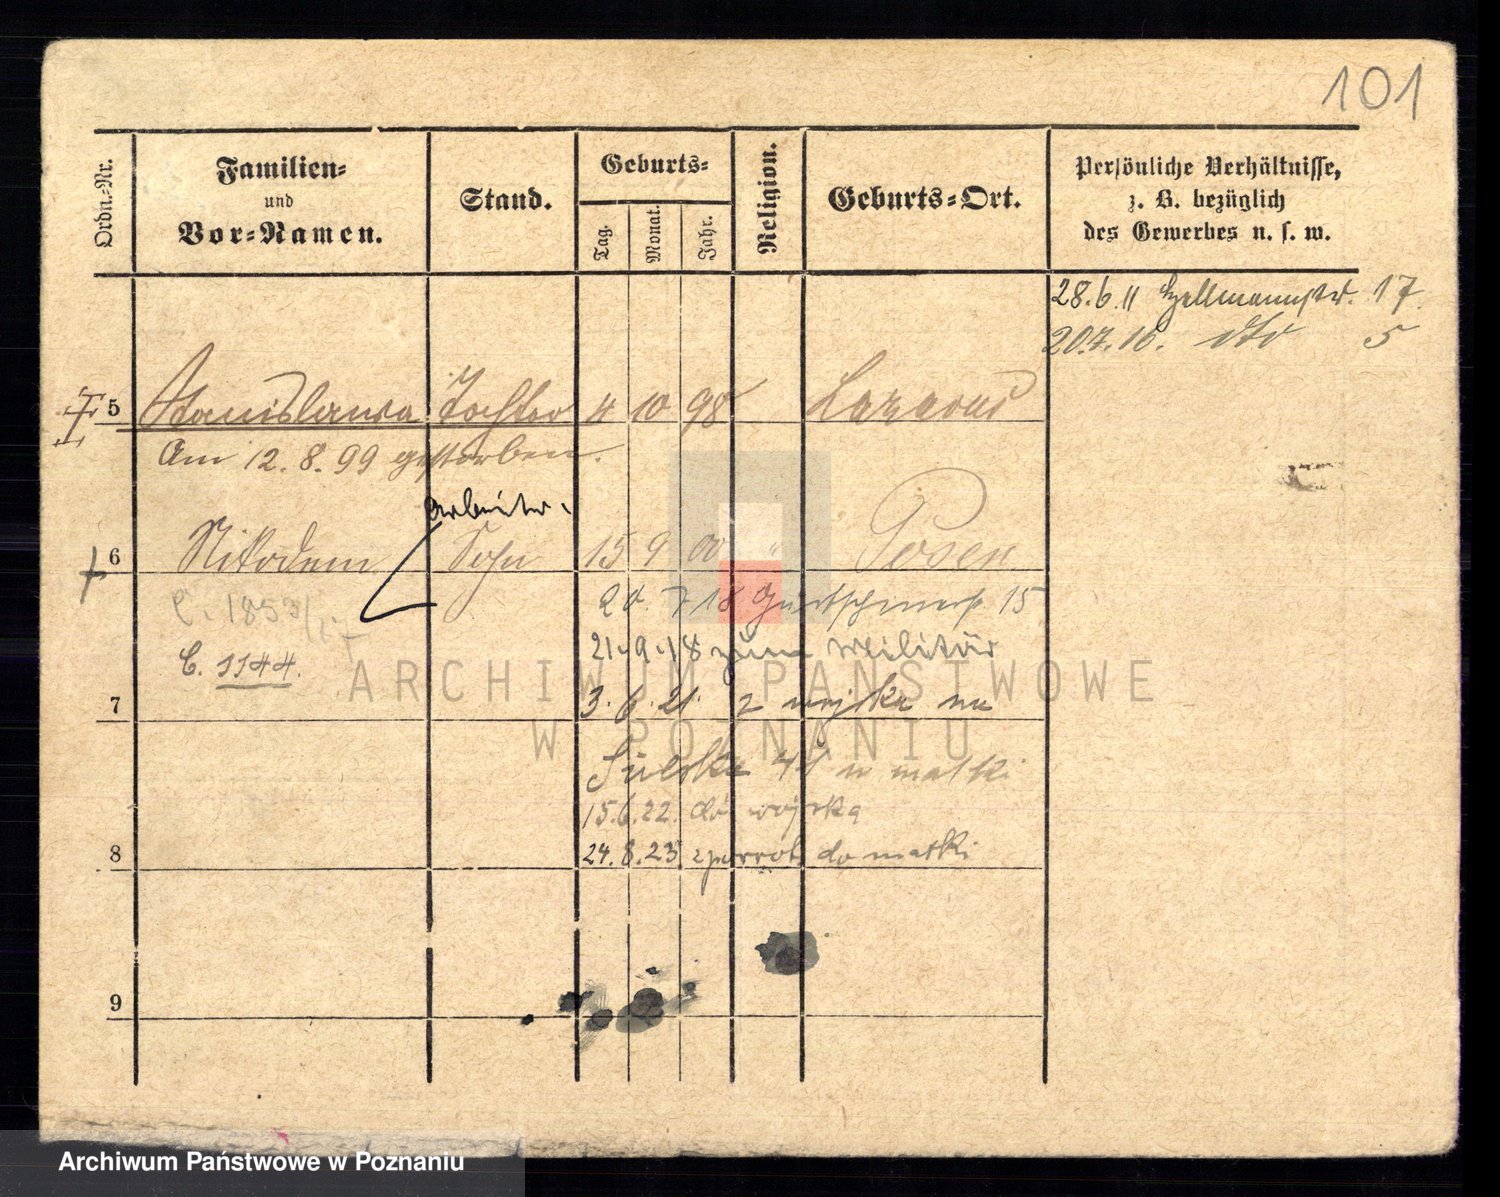 101
Ordn.-Nr.
Familien-
und
Vor-Namen.
Stand.
Geburts-
Tag.
Monat.
Jahr.
Religion.
Geburts-Ort.
Persönliche Verhältnisse,
z. B. bezüglich
des Gewerbes u. s. w.
28.6.11 17
20.7.16. dto 5
5 Stanislawa Tochter 4 10 98 Lazarus
Am 12.8.99 gestorben.
Arbeiter.
6 Nikodem Sohn 15 9 00 " Posen
20. 7 18 15
21.9.18 zum Militär
C. 1144.
7 3.6.21. z wojska na
44 u matki
15.6.22. do wojska
8 24.8.23 zpowrot do matki
9
ARCHIWUM PAŃSTWOWE
W POZNANIU
Archiwum Państwowe w Poznaniu